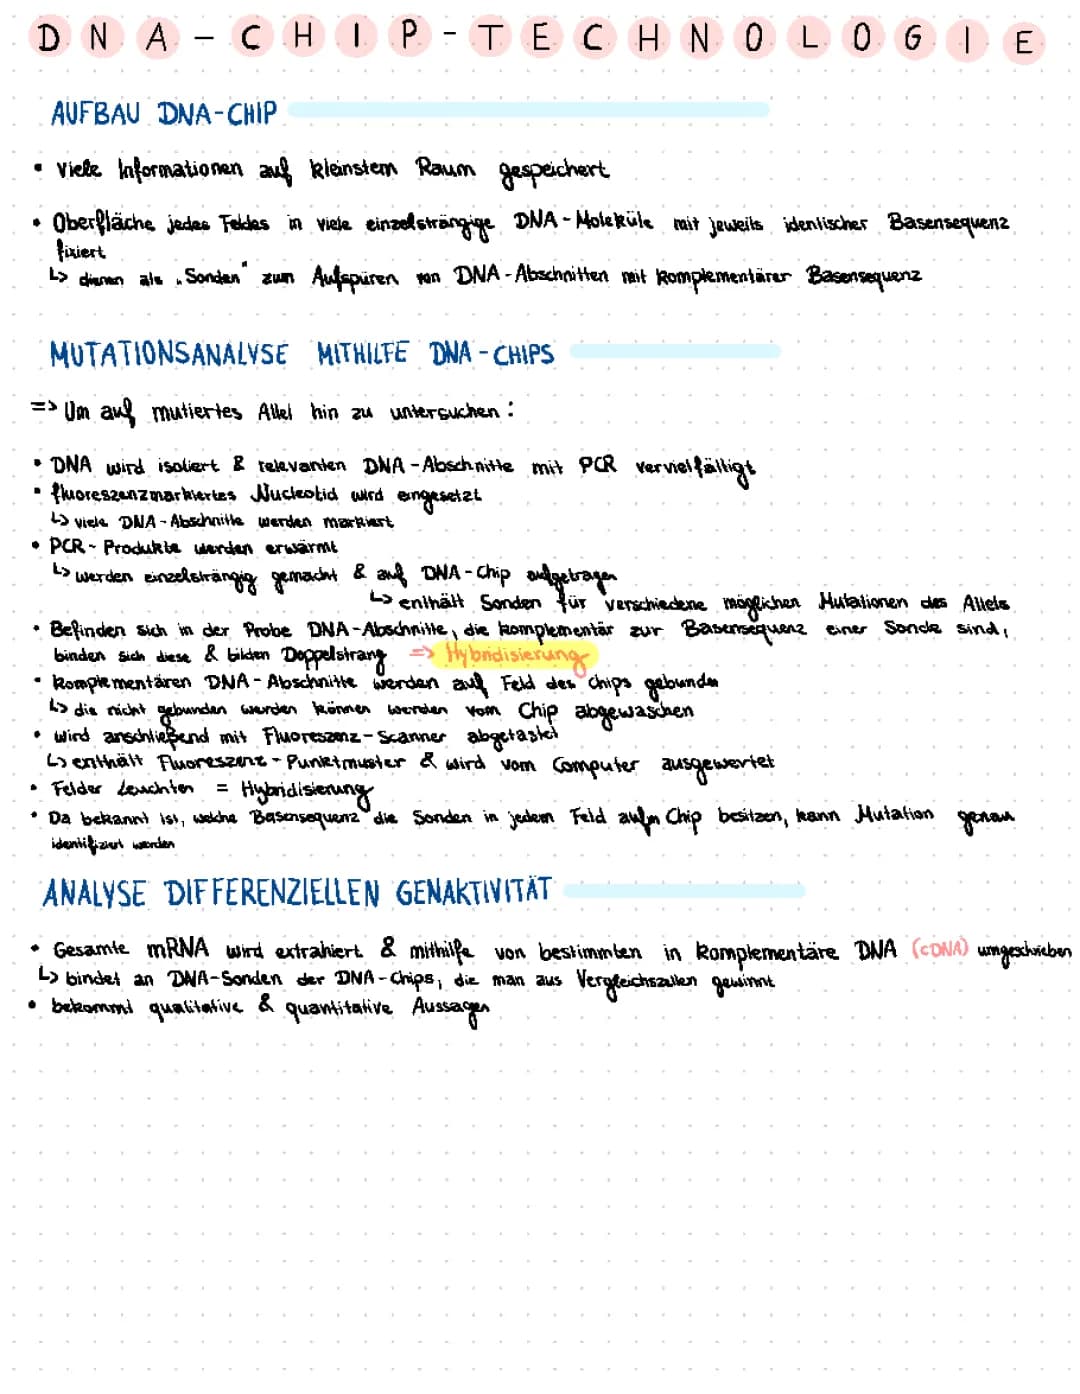 DNA-CHIP-TECHNOLOGIE
AUFBAU DNA-CHIP
• Viele Informationen auf kleinstem Raum gespeichert
• Oberfläche jedes Feldes in viele einzelsträngige DNA-Moleküle mit jeweils identischer Basensequenz
fixiert
↳ dienen als „Sonden" zum Aufspüren von DNA-Abschnitten mit komplementärer Basensequenz
MUTATIONSANALYSE MITHILFE DNA-CHIPS
=> Um auf mutiertes Allel hin zu untersuchen:
• DNA wird isoliert & relevanten DNA-Abschnitte mit PCR vervielfältigt
• fluoreszenzmarkiertes Nucleotid wird eingesetzt
↳ viele DNA-Abschnitte werden markiert
• PCR-Produkte werden erwärmt
↳ werden einzelsträngig gemacht & auf DNA-Chip aufgetragen
↳ enthält Sonden für verschiedene möglichen Mutationen des Allels
• Befinden sich in der Probe DNA-Abschnitte, die komplementär zur Basensequenz einer Sonde sind,
binden sich diese & bilden Doppelstrang => Hybridisierung
• komplementären DNA-Abschnitte werden auf Feld des Chips gebunden
↳ die nicht gebunden werden können werden vom Chip abgewaschen
• wird anschließend mit Fluoreszenz-Scanner abgetastet
↳ enthält Fluoreszenz-Punktmuster & wird vom Computer ausgewertet
• Felder Leuchten = Hybridisierung
• Da bekannt ist, welche Basensequenz die Sonden in jedem Feld aufm Chip besitzen, kann Mutation genau
identifiziert werden
ANALYSE DIFFERENZIELLEN GENAKTIVITÄT
• Gesamte mRNA wird extrahiert & mithilfe von bestimmten in komplementäre DNA (cDNA) umgeschrieben
↳ bindet an DNA-Sonden der DNA-Chips, die man aus Vergleichszellen gewinnt
• bekommt qualitative & quantitative Aussagen